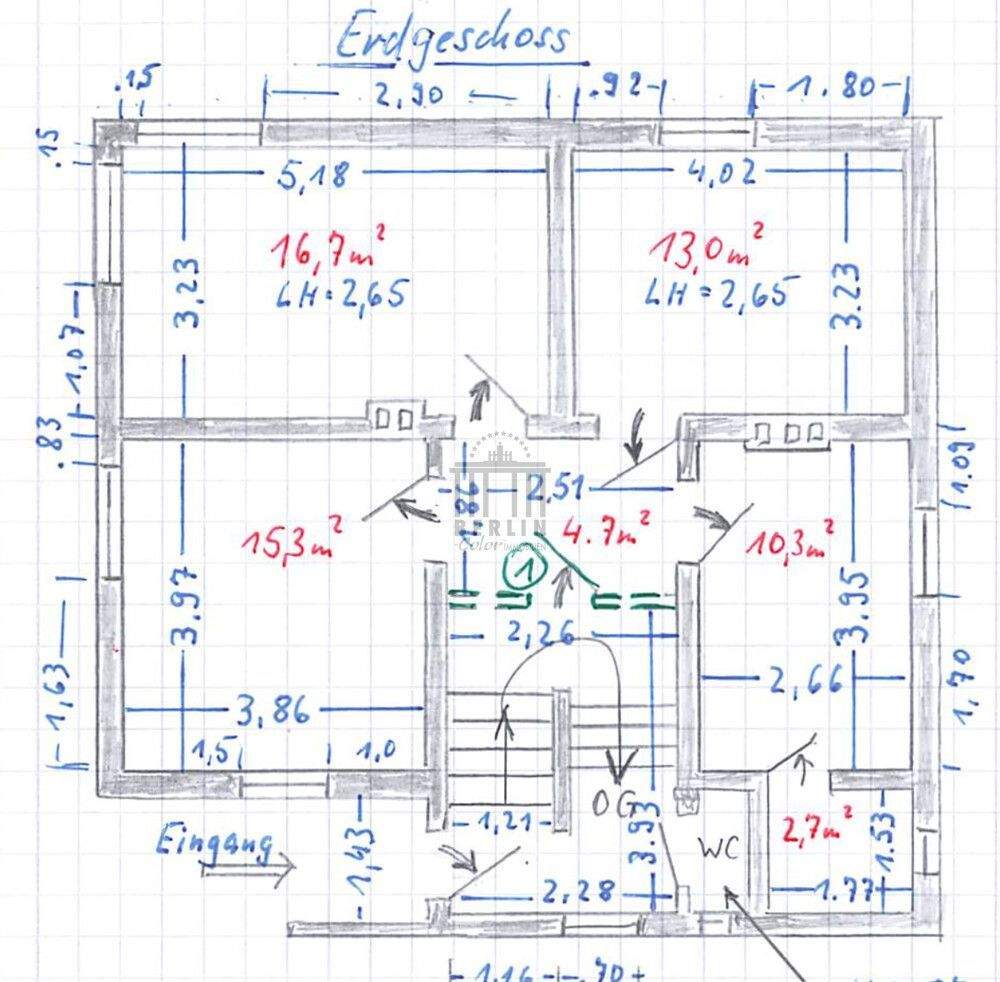 Erdgeschoss
.15
2,90
.92
1.80
.15
5,18
4,02
16,7m²
LH=2,65
13,0m²
LH=2,65
3,23
3.23
1,07
.83
2,51
1.09
.86
BERLIN
Color IMMOBILIEN
15,3m²
4.7m²
10,3m²
1
3.97
2,26
3.95
1,63
2,66
1,70
3,86
1,5
1,0
OG
1,21
2,7m²
Eingang
1,43
3.93
WC
1.53
2,28
1.77
1.16
.70